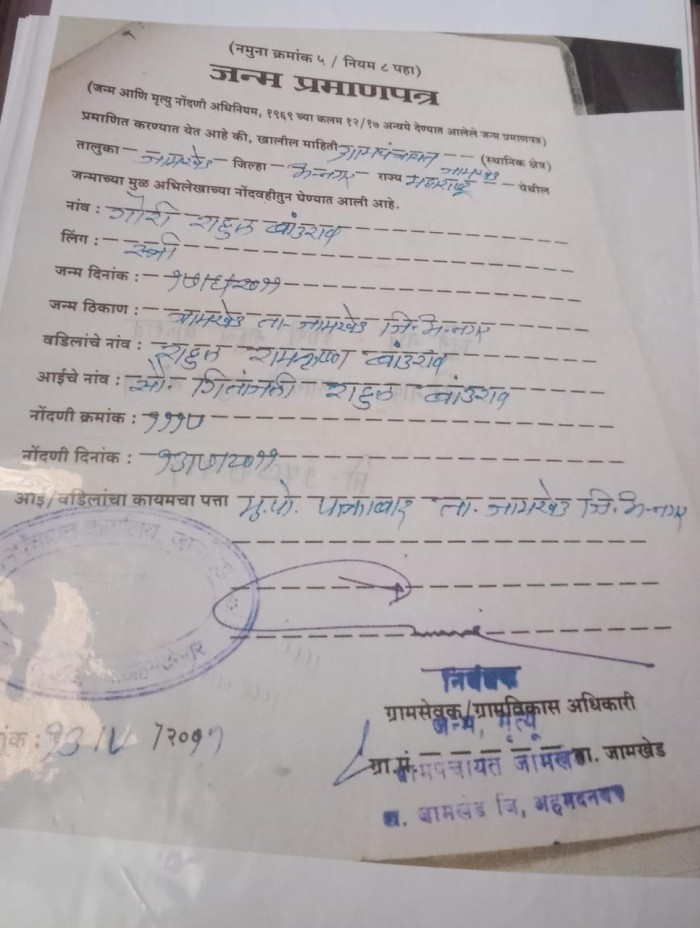 (नमुना क्रमांक ५ / नियम ८ पहा)
जन्म प्रमाणपत्र
(जन्म आणि मृत्यु नोंदणी अधिनियम, १९६९ च्या कलम १२/१७ अन्वये देण्यात आलेले जन्म प्रमाणपत्र)
प्रमाणित करण्यात येत आहे की, खालील माहिती ग्रामपंचायत जामखेड (स्थानिक क्षेत्र)
तालुका जामखेड जिल्हा अ.नगर राज्य महाराष्ट्र येथील
जन्माच्या मुळ अभिलेखाच्या नोंदवहीतुन घेण्यात आली आहे.
नांव : गौरी राहुल खांडराव
लिंग : स्त्री
जन्म दिनांक : २०११
जन्म ठिकाण : जामखेड ता. जामखेड जि. अ. नगर
वडिलांचे नांव : राहुल रामकृष्ण खांडराव
आईचे नांव : सौ. गितांजली राहुल खांडराव
नोंदणी क्रमांक :
नोंदणी दिनांक : २०११
आई/वडिलांचा कायमचा पत्ता मु.पो. ता. जामखेड जि. अ. नगर
निबंधक
ग्रामसेवक/ग्रामविकास अधिकारी
जन्म, मृत्यू
ग्रा.पं. ता. जामखेड
ग्रामपंचायत जामखेड
ता. जामखेड जि, अहमदनगर